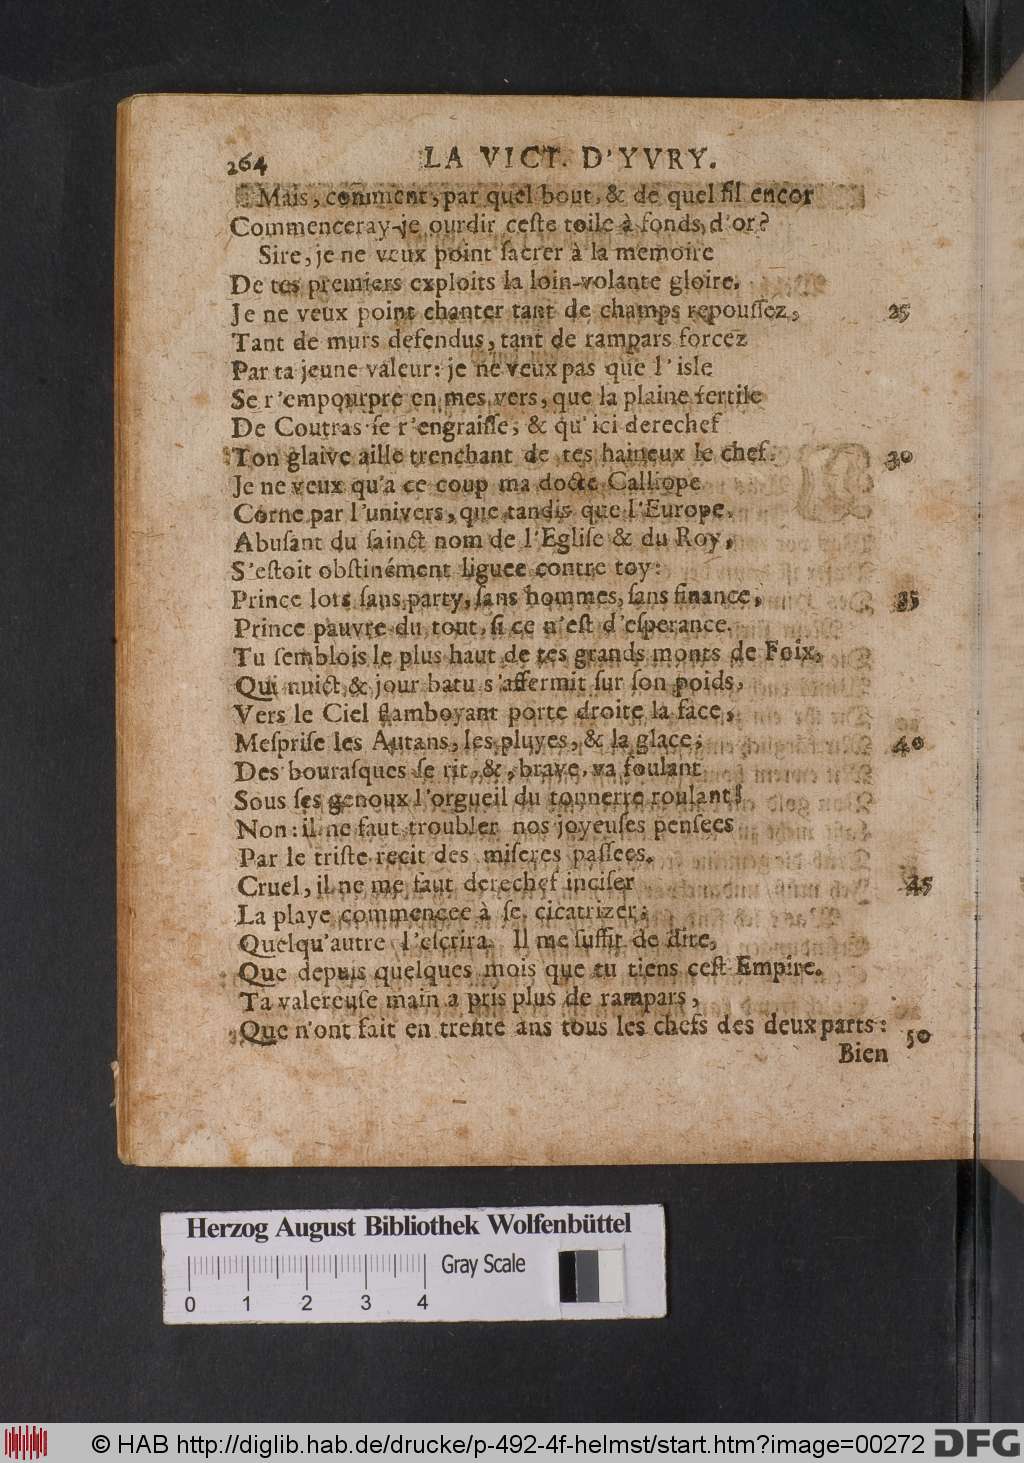 264
LA VICT. D'YVRY.
Mais, comment, par quel bout, & de quel fil encor
Commenceray-je ourdir ceſte toile à fonds d'or?
Sire, je ne veux point ſacrer à la memoire
De tes premiers exploits la loin-volante gloire.
Je ne veux point chanter tant de champs repouſſez, 25
Tant de murs defendus, tant de rampars forcez
Par ta jeune valeur: je ne veux pas que l'iſle
Se r'empourpre en mes vers, que la plaine fertile
De Coutras ſe r'engraiſſe, & qu'ici derechef
Ton glaive aille trenchant de tes haineux le chef. 30
Je ne veux qu'a ce coup ma docte Calliope
Corne par l'univers, que tandis que l'Europe,
Abuſant du ſainct nom de l'Egliſe & du Roy,
S'eſtoit obſtinément liguee contre toy:
Prince lors ſans party, ſans hommes, ſans finance, 35
Prince pauvre du tout, ſi ce n'eſt d'eſperance,
Tu ſemblois le plus haut de tes grands monts de Foix,
Qui nuict & jour batu s'affermit ſur ſon poids,
Vers le Ciel flamboyant porte droite la face,
Meſpriſe les Autans, les pluyes, & la glace; 40
Des bouraſques ſe rit, &, brave, va foulant
Sous ſes genoux l'orgueil du tonnerre roulant!
Non: il ne faut troubler nos joyeuſes penſees
Par le triſte recit des miſeres paſſees.
Cruel, il ne me faut derechef inciſer 45
La playe commencee à ſe cicatrizer;
Quelqu'autre l'eſcrira. Il me ſuffit de dire,
Que depuis quelques mois que tu tiens ceſt Empire,
Ta valereuſe main a pris plus de rampars,
Que n'ont fait en trente ans tous les chefs des deux parts: 50
Bien
Herzog August Bibliothek Wolfenbüttel
Gray Scale
0 1 2 3 4
© HAB http://diglib.hab.de/drucke/p-492-4f-helmst/start.htm?image=00272 DFG